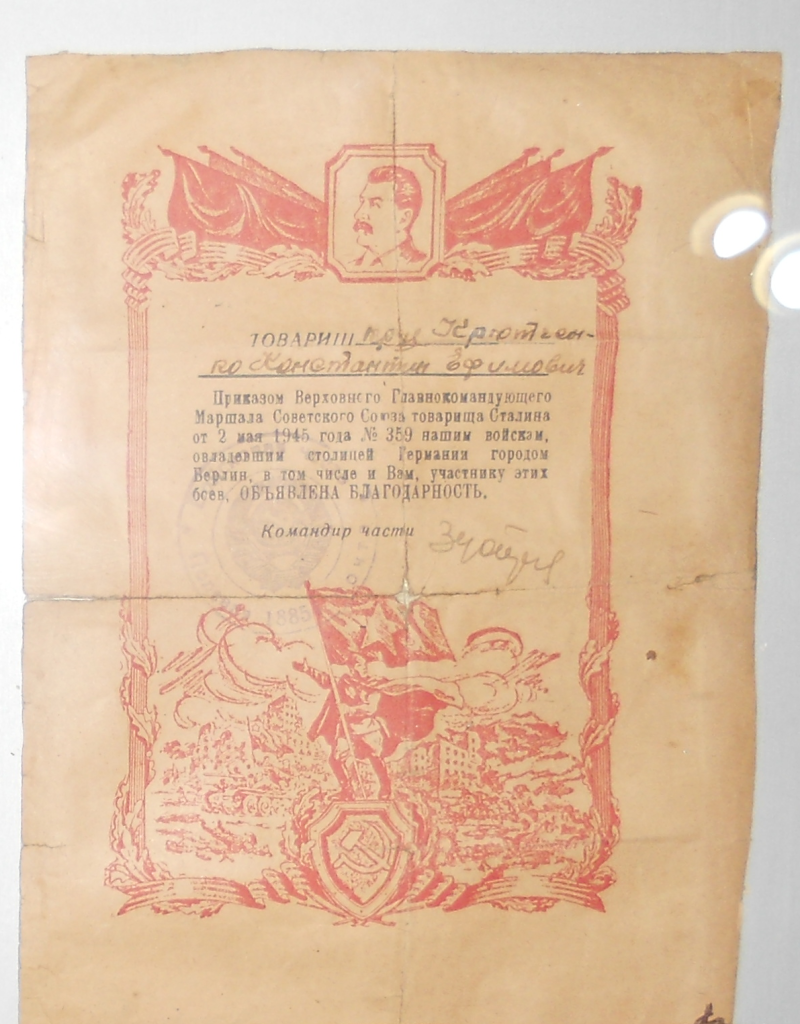 ТОВАРИШ
ко Константин Ефимович
Приказом Верховного Главнокомандующего
Маршала Советского Союза товарища Сталина
от 2 мая 1945 года № 359 нашим войскам,
овладевшим столицей Германии городом
Берлин, в том числе и Вам, участнику этих
боев, ОБЪЯВЛЕНА БЛАГОДАРНОСТЬ.
Командир части